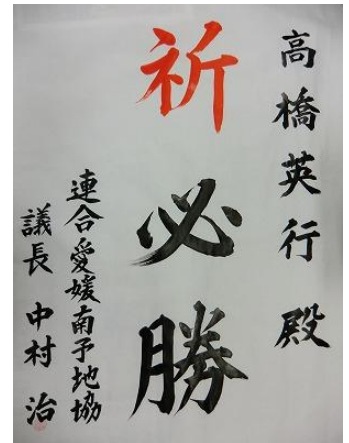 高橋英行 殿
祈必勝
連合愛媛南予地協
議長 中村 治